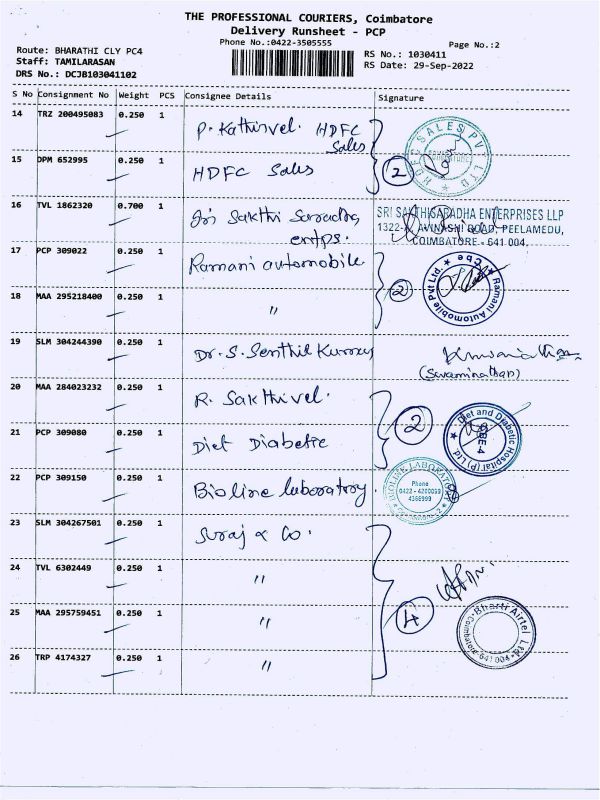 THE PROFESSIONAL COURIERS, Coimbatore
Delivery Runsheet - PCP
Phone No.:0422-3505555
Page No.:2
Route: BHARATHI CLY PC4
Staff: TAMILARASAN
DRS No.: DCJB103041102
RS No.: 1030411
RS Date: 29-Sep-2022
S No Consignment No Weight PCS Consignee Details Signature
14 TRZ 200495083 0.250 1 P. Kathirvel. HDFC Sales
15 DPM 652995 0.250 1 HDFC Sales
2
HDFC SALES PVT LTD
16 TVL 1862320 0.700 1 Sri Sakthi Saradha entps.
SRI SAKTHISARADHA ENTERPRISES LLP
AVINASHI ROAD, PEELAMEDU,
COIMBATORE - 641 004.
17 PCP 309022 0.250 1 Ramani automobile
18 MAA 295218400 0.250 1 "
2
Ramani Automobile Pvt Ltd. Cbe
19 SLM 304244390 0.250 1 Dr. S. Senthil Kumar
(Swaminathan)
20 MAA 284023232 0.250 1 R. Sakthivel.
21 PCP 309080 0.250 1 Diet Diabetic
2
Diet and Diabetic Hospital (P) Ltd
CBE-4
22 PCP 309150 0.250 1 Bioline laboratory.
BIOLINE LABORATORY
Phone
0422 - 4200059
4366999
23 SLM 304267501 0.250 1 Suraj & Co.
24 TVL 6302449 0.250 1 "
25 MAA 295759451 0.250 1 "
26 TRP 4174327 0.250 1 "
4
Bharti Airtel Ltd
Coimbatore-641 004